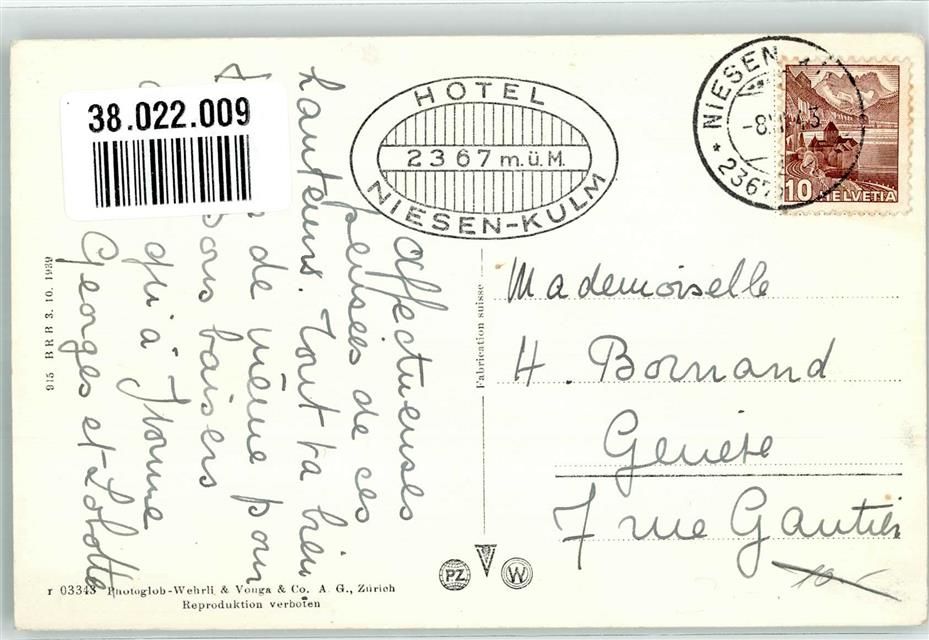 38.022.009
HOTEL
2367 m.ü.M.
NIESEN-KULM
NIESEN
-8.
2367
10 HELVETIA
Affectueuses
pensées de ces
hauteurs. Tout va bien
de même pour
bons baisers
qu'à Yvonne
Georges et Lolotte
915 BRB 3. 10. 1939
Fabrication suisse
Mademoiselle
H. Bornand
Genève
7 rue Gautier
10.-
PZ
W
r 03343 Photoglob-Wehrli & Vouga & Co. A. G., Zürich
Reproduktion verboten